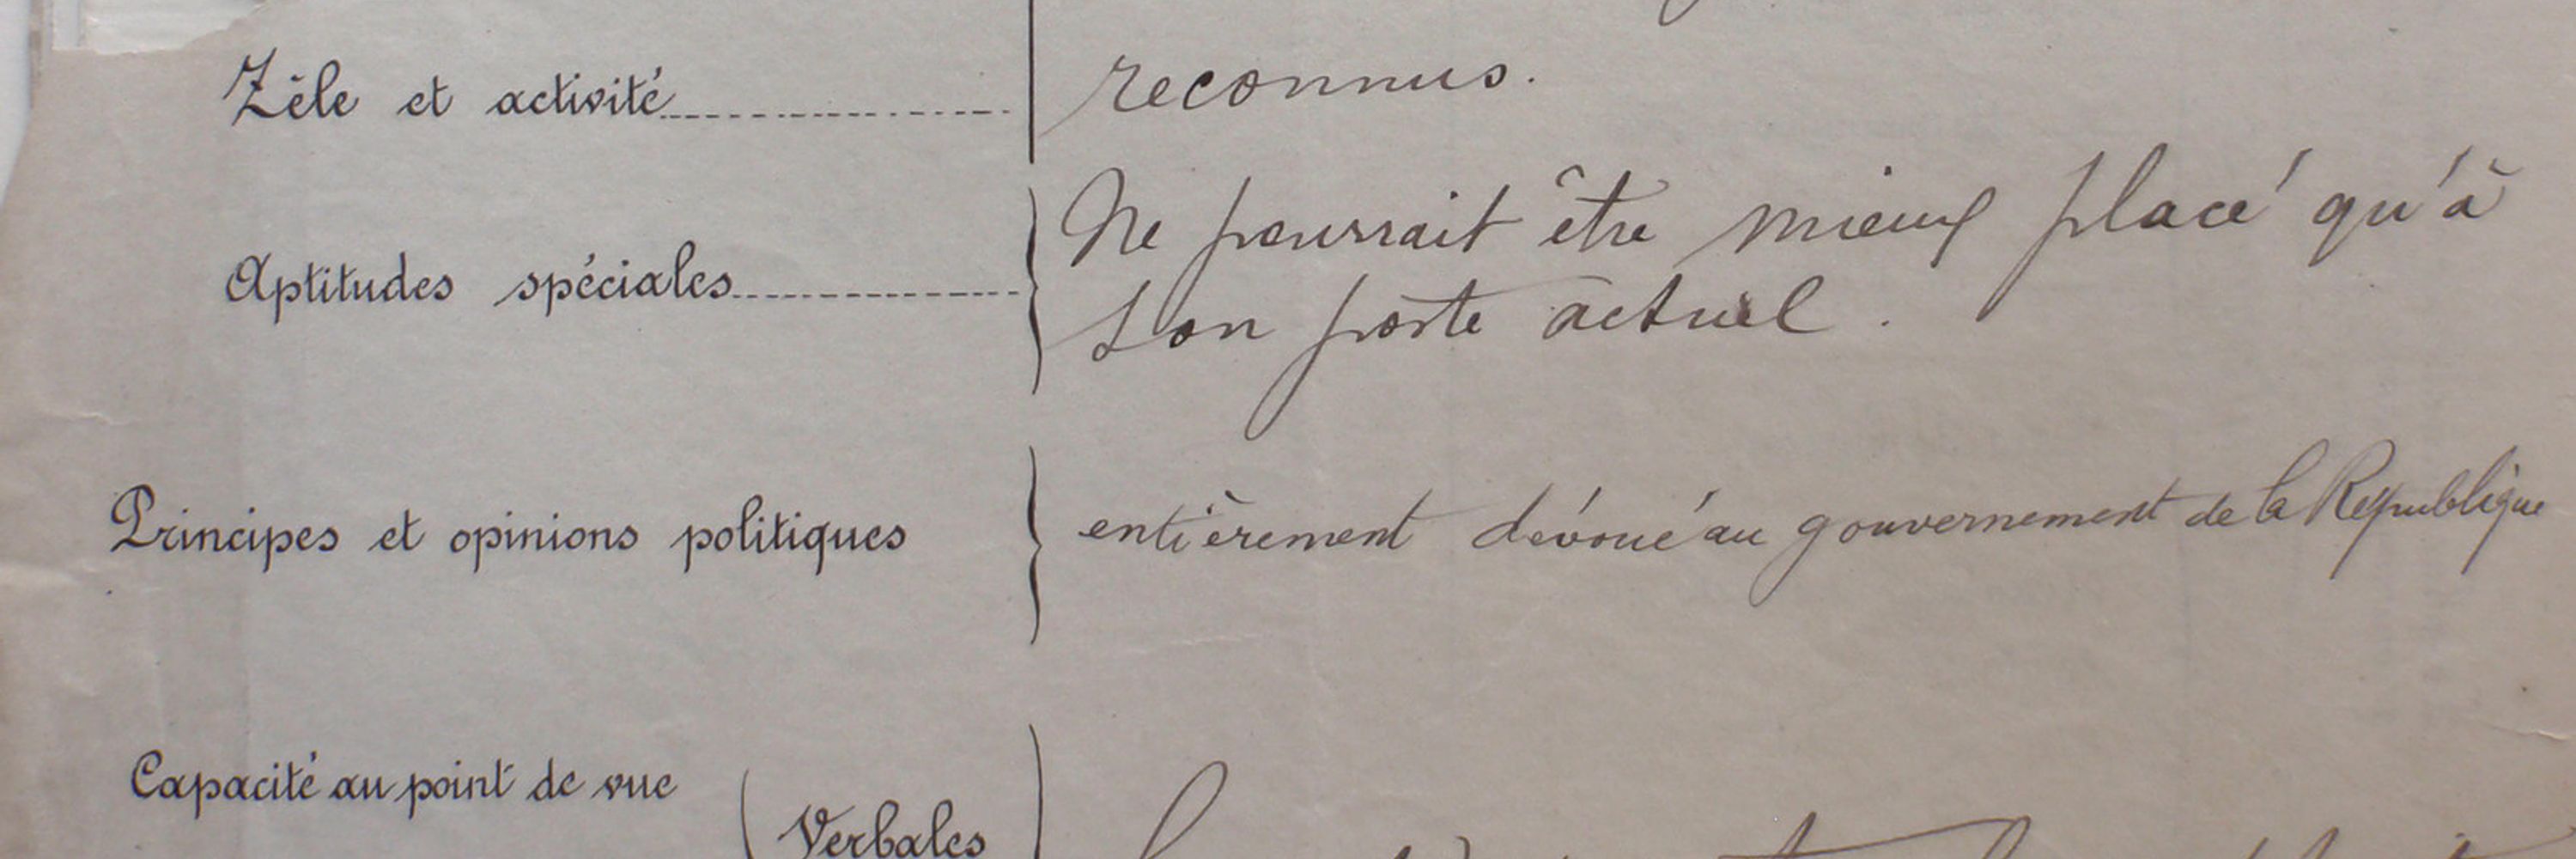 Zèle et activité reconnus.
Ne pourrait être mieux placé qu'à
Aptitudes spéciales son poste actuel.
Principes et opinions politiques entièrement dévoué au gouvernement de la République
Capacité au point de vue
Verbales